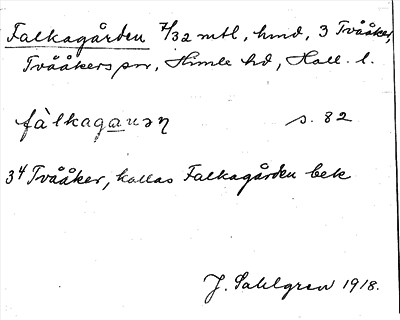 Falkagården 7/32 mtl, hmd, 3 Tvååker,
Tvååkers sn, Himle hd, Hall. l.
fàlkagaꭒən s. 82
3⁴ Tvååker, kallas Falkagården bek
J. Sahlgren 1918.